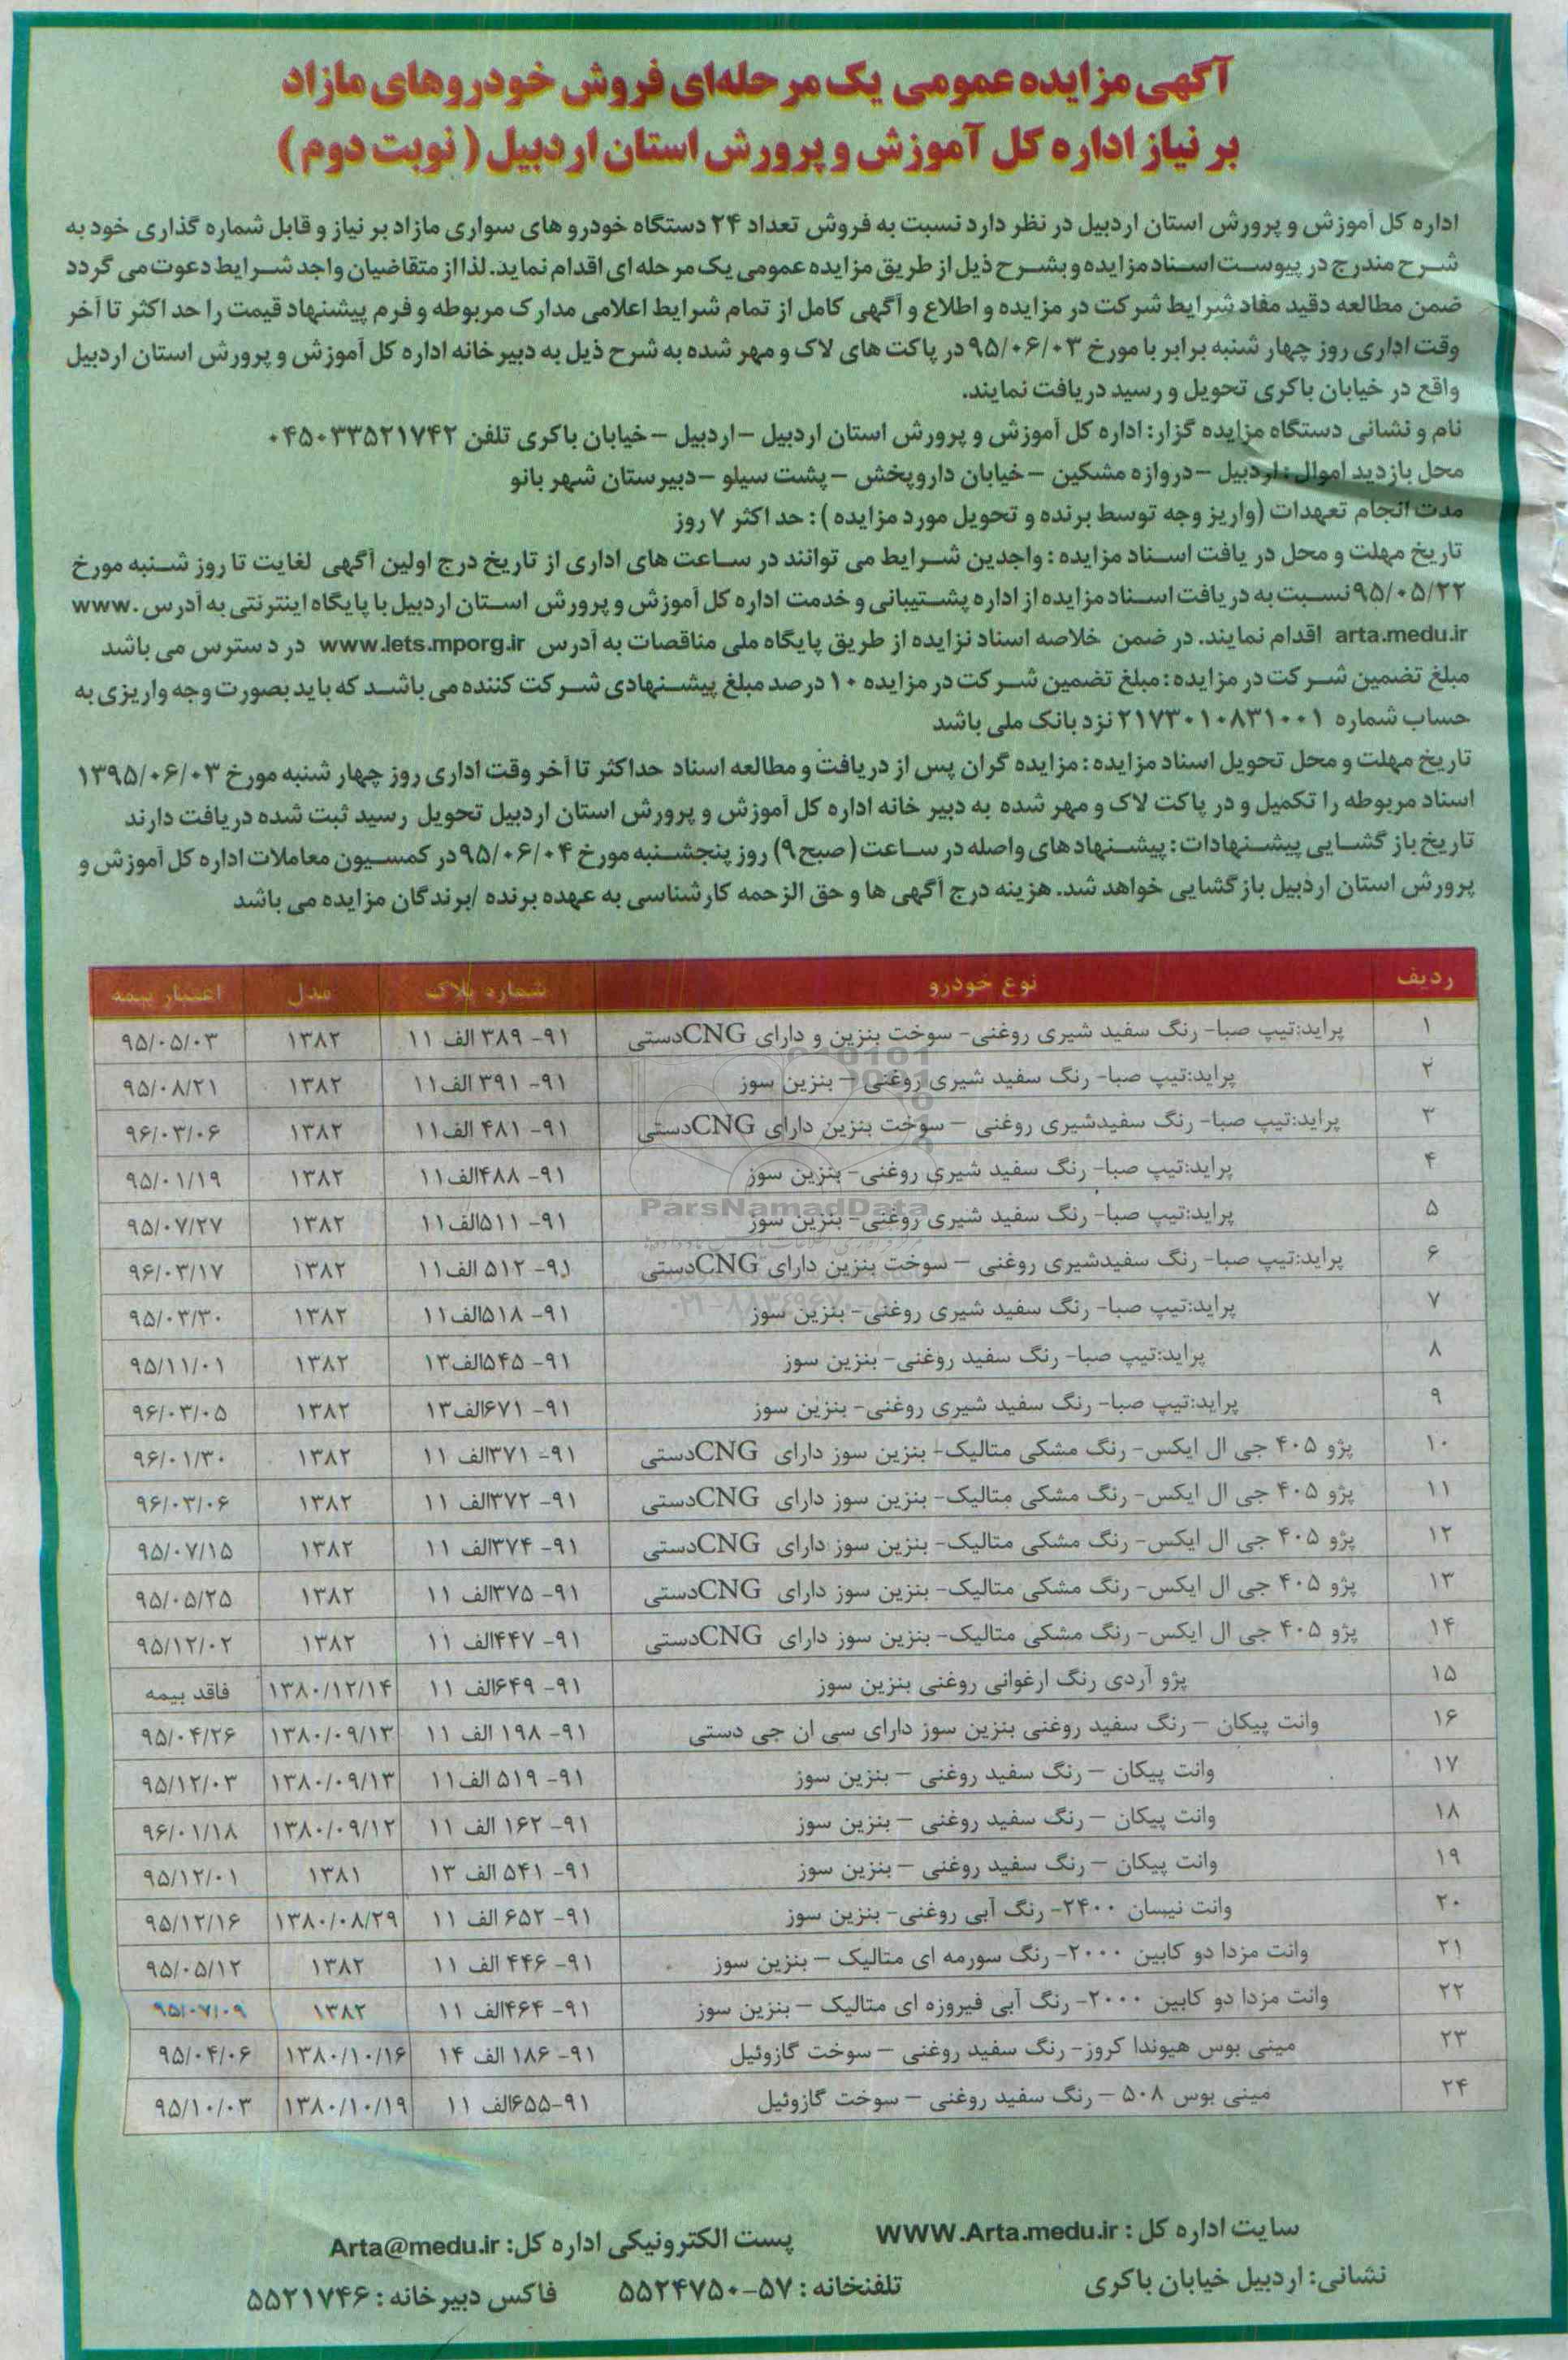 آگهی مزایده عمومی یک مرحله‌ای فروش خودروهای مازاد
بر نیاز اداره کل آموزش و پرورش استان اردبیل ( نوبت دوم )
اداره کل آموزش و پرورش استان اردبیل در نظر دارد نسبت به فروش تعداد ۲۴ دستگاه خودرو های سواری مازاد بر نیاز و قابل شماره گذاری خود به
شرح مندرج در پیوست اسناد مزایده و بشرح ذیل از طریق مزایده عمومی یک مرحله ای اقدام نماید. لذا از متقاضیان واجد شرایط دعوت می گردد
ضمن مطالعه دقید مفاد شرایط شرکت در مزایده و اطلاع و آگهی کامل از تمام شرایط اعلامی مدارک مربوطه و فرم پیشنهاد قیمت را حد اکثر تا آخر
وقت اداری روز چهار شنبه برابر با مورخ ۹۵/۰۶/۰۳ در پاکت های لاک و مهر شده به شرح ذیل به دبیرخانه اداره کل آموزش و پرورش استان اردبیل
واقع در خیابان باکری تحویل و رسید دریافت نمایند.
نام و نشانی دستگاه مزایده گزار: اداره کل آموزش و پرورش استان اردبیل –اردبیل –خیابان باکری تلفن ۰۴۵۰۳۳۵۲۱۷۴۲
محل بازدید اموال: اردبیل –دروازه مشکین –خیابان داروپخش –پشت سیلو –دبیرستان شهر بانو
مدت انجام تعهدات (واریز وجه توسط برنده و تحویل مورد مزایده ): حد اکثر ۷ روز
تاریخ مهلت و محل در یافت اسناد مزایده : واجدین شرایط می توانند در ساعت های اداری از تاریخ درج اولین آگهی لغایت تا روز شنبه مورخ
۹۵/۰۵/۲۲ نسبت به دریافت اسناد مزایده از اداره پشتیبانی و خدمت اداره کل آموزش و پرورش استان اردبیل با پایگاه اینترنتی به آدرس www.
arta.medu.ir اقدام نمایند. در ضمن خلاصه اسناد نزایده از طریق پایگاه ملی مناقصات به آدرس www.iets.mporg.ir در دسترس می باشد
مبلغ تضمین شرکت در مزایده : مبلغ تضمین شرکت در مزایده ۱۰ درصد مبلغ پیشنهادی شرکت کننده می باشد که باید بصورت وجه واریزی به
حساب شماره ۲۱۷۳۰۱۰۸۳۱۰۰۱ نزد بانک ملی باشد
تاریخ مهلت و محل تحویل اسناد مزایده : مزایده گران پس از دریافت و مطالعه اسناد حداکثر تا آخر وقت اداری روز چهار شنبه مورخ ۱۳۹۵/۰۶/۰۳
اسناد مربوطه را تکمیل و در پاکت لاک و مهر شده به دبیر خانه اداره کل آموزش و پرورش استان اردبیل تحویل رسید ثبت شده دریافت دارند
تاریخ باز گشایی پیشنهادات : پیشنهاد های واصله در ساعت ( صبح۹) روز پنجشنبه مورخ ۹۵/۰۶/۰۴ در کمسیون معاملات اداره کل آموزش و
پرورش استان اردبیل بازگشایی خواهد شد. هزینه درج آگهی ها و حق الزحمه کارشناسی به عهده برنده /برندگان مزایده می باشد
ردیف نوع خودرو شماره پلاک مدل اعتبار بیمه
۱ پراید:تیپ صبا- رنگ سفید شیری روغنی- سوخت بنزین و دارای CNGدستی ۹۱- ۳۸۹ الف ۱۱ ۱۳۸۲ ۹۵/۰۵/۰۳
۲ پراید:تیپ صبا- رنگ سفید شیری روغنی – بنزین سوز ۹۱- ۳۹۱ الف۱۱ ۱۳۸۲ ۹۵/۰۸/۲۱
۳ پراید:تیپ صبا- رنگ سفیدشیری روغنی – سوخت بنزین دارای CNGدستی ۹۱- ۴۸۱ الف۱۱ ۱۳۸۲ ۹۶/۰۳/۰۶
۴ پراید:تیپ صبا- رنگ سفید شیری روغنی- بنزین سوز ۹۱- ۴۸۸الف۱۱ ۱۳۸۲ ۹۵/۰۱/۱۹
۵ پراید:تیپ صبا- رنگ سفید شیری روغنی- بنزین سوز ۹۱- ۵۱۱الف۱۱ ۱۳۸۲ ۹۵/۰۷/۲۷
۶ پراید:تیپ صبا- رنگ سفیدشیری روغنی – سوخت بنزین دارای CNGدستی ۹۱- ۵۱۲ الف۱۱ ۱۳۸۲ ۹۶/۰۳/۱۷
۷ پراید:تیپ صبا- رنگ سفید شیری روغنی- بنزین سوز ۹۱- ۵۱۸الف۱۱ ۱۳۸۲ ۹۵/۰۳/۳۰
۸ پراید:تیپ صبا- رنگ سفید روغنی- بنزین سوز ۹۱- ۵۴۵الف۱۳ ۱۳۸۲ ۹۵/۱۱/۰۱
۹ پراید:تیپ صبا- رنگ سفید شیری روغنی- بنزین سوز ۹۱- ۶۷۱الف۱۳ ۱۳۸۲ ۹۶/۰۳/۰۵
۱۰ پژو ۴۰۵ جی ال ایکس- رنگ مشکی متالیک- بنزین سوز دارای CNGدستی ۹۱- ۳۷۱الف ۱۱ ۱۳۸۲ ۹۶/۰۱/۳۰
۱۱ پژو ۴۰۵ جی ال ایکس- رنگ مشکی متالیک- بنزین سوز دارای CNGدستی ۹۱- ۳۷۲الف ۱۱ ۱۳۸۲ ۹۶/۰۳/۰۶
۱۲ پژو ۴۰۵ جی ال ایکس- رنگ مشکی متالیک- بنزین سوز دارای CNGدستی ۹۱- ۳۷۴الف ۱۱ ۱۳۸۲ ۹۵/۰۷/۱۵
۱۳ پژو ۴۰۵ جی ال ایکس- رنگ مشکی متالیک- بنزین سوز دارای CNGدستی ۹۱- ۳۷۵الف ۱۱ ۱۳۸۲ ۹۵/۰۵/۲۵
۱۴ پژو ۴۰۵ جی ال ایکس- رنگ مشکی متالیک- بنزین سوز دارای CNGدستی ۹۱- ۴۴۷الف ۱۱ ۱۳۸۲ ۹۵/۱۲/۰۲
۱۵ پژو آردی رنگ ارغوانی روغنی بنزین سوز ۹۱- ۶۴۹الف ۱۱ ۱۳۸۰/۱۲/۱۴ فاقد بیمه
۱۶ وانت پیکان – رنگ سفید روغنی بنزین سوز دارای سی ان جی دستی ۹۱- ۱۹۸ الف ۱۱ ۱۳۸۰/۰۹/۱۳ ۹۵/۰۴/۲۶
۱۷ وانت پیکان – رنگ سفید روغنی – بنزین سوز ۹۱- ۵۱۹ الف۱۱ ۱۳۸۰/۰۹/۱۳ ۹۵/۱۲/۰۳
۱۸ وانت پیکان – رنگ سفید روغنی – بنزین سوز ۹۱- ۱۶۲ الف ۱۱ ۱۳۸۰/۰۹/۱۲ ۹۶/۰۱/۱۸
۱۹ وانت پیکان – رنگ سفید روغنی – بنزین سوز ۹۱- ۵۴۱ الف ۱۳ ۱۳۸۱ ۹۵/۱۲/۰۱
۲۰ وانت نیسان ۲۴۰۰- رنگ آبی روغنی- بنزین سوز ۹۱- ۶۵۲ الف ۱۱ ۱۳۸۰/۰۸/۲۹ ۹۵/۱۲/۱۶
۲۱ وانت مزدا دو کابین ۲۰۰۰- رنگ سورمه ای متالیک – بنزین سوز ۹۱- ۴۴۶ الف ۱۱ ۱۳۸۲ ۹۵/۰۵/۱۲
۲۲ وانت مزدا دو کابین ۲۰۰۰- رنگ آبی فیروزه ای متالیک – بنزین سوز ۹۱- ۴۶۴الف ۱۱ ۱۳۸۲ ۹۵/۰۷/۰۹
۲۳ مینی بوس هیوندا کروز- رنگ سفید روغنی – سوخت گازوئیل ۹۱- ۱۸۶ الف ۱۴ ۱۳۸۰/۱۰/۱۶ ۹۵/۰۴/۰۶
۲۴ مینی بوس ۵۰۸ – رنگ سفید روغنی – سوخت گازوئیل ۹۱-۶۵۵الف ۱۱ ۱۳۸۰/۱۰/۱۹ ۹۵/۱۰/۰۳
ParsNamadData
سایت اداره کل : WWW.Arta.medu.ir پست الکترونیکی اداره کل: Arta@medu.ir
نشانی: اردبیل خیابان باکری تلفنخانه : ۵۷-۵۵۲۴۷۵۰ فاکس دبیرخانه : ۵۵۲۱۷۴۶